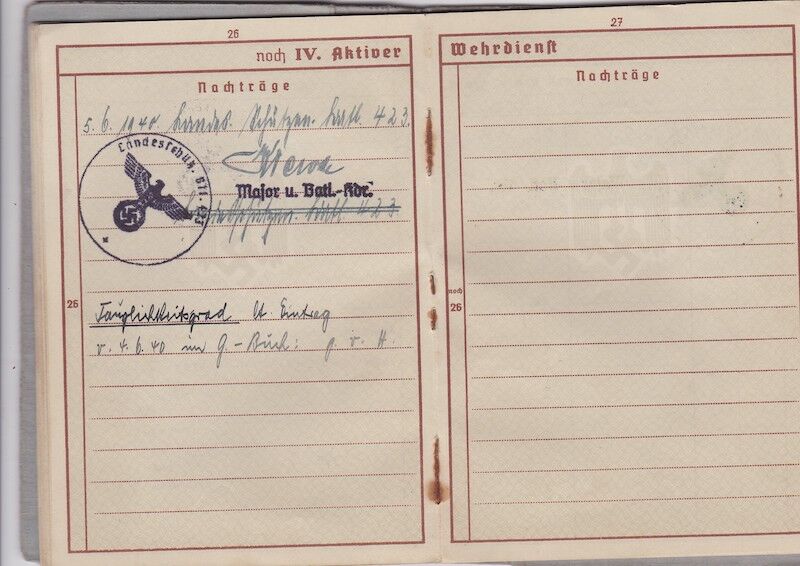 26
noch IV. Aktiver
Nachträge
5. 6. 1940 Landes. Schützen. Batl. 423.
Landesschütz. Btl. 423
Major u. Batl.-Kdr.
Landesschützen. Batl. 423
26 Tauglichkeitsgrad lt. Eintrag
v. 4. 6. 40 im G-Buch: g. v. H.
27
Wehrdienst
Nachträge
noch
26